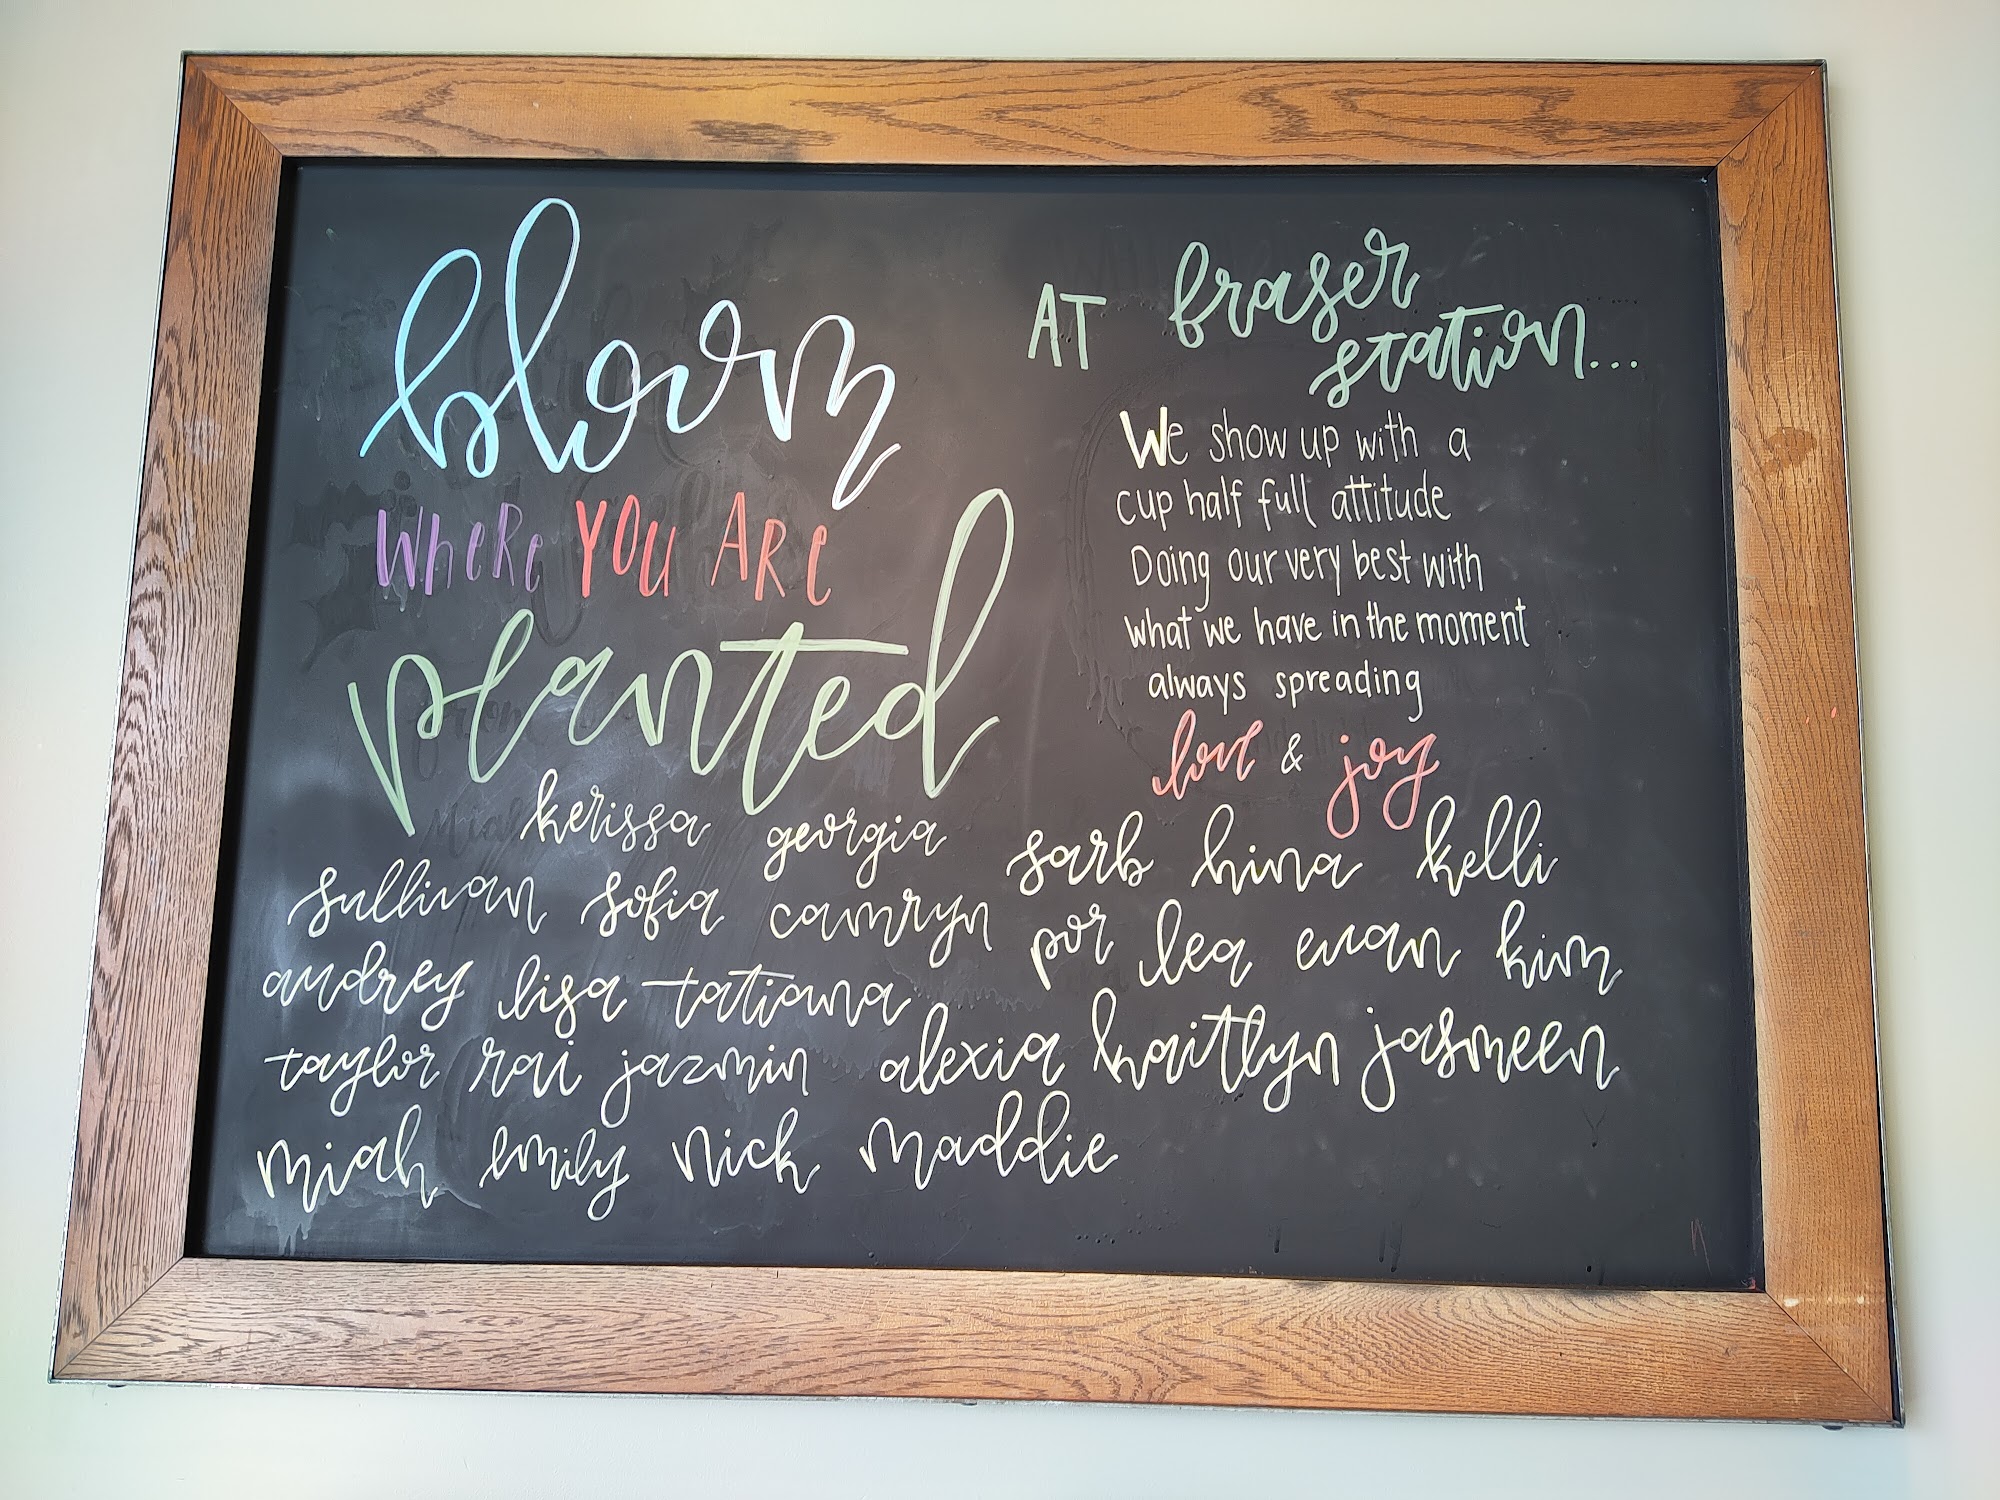 bloom
WHeRe YOU ARe
planted
AT fraser
station...
We show up with a
cup half full attitude
Doing our very best with
what we have in the moment
always spreading
love & joy
kerissa georgia sarb hina kelli
sullivan sofia camryn por lea evan kim
audrey lisa tatiana
taylor rai jazmin alexia kaitlyn jasmeen
miah emily nick maddie